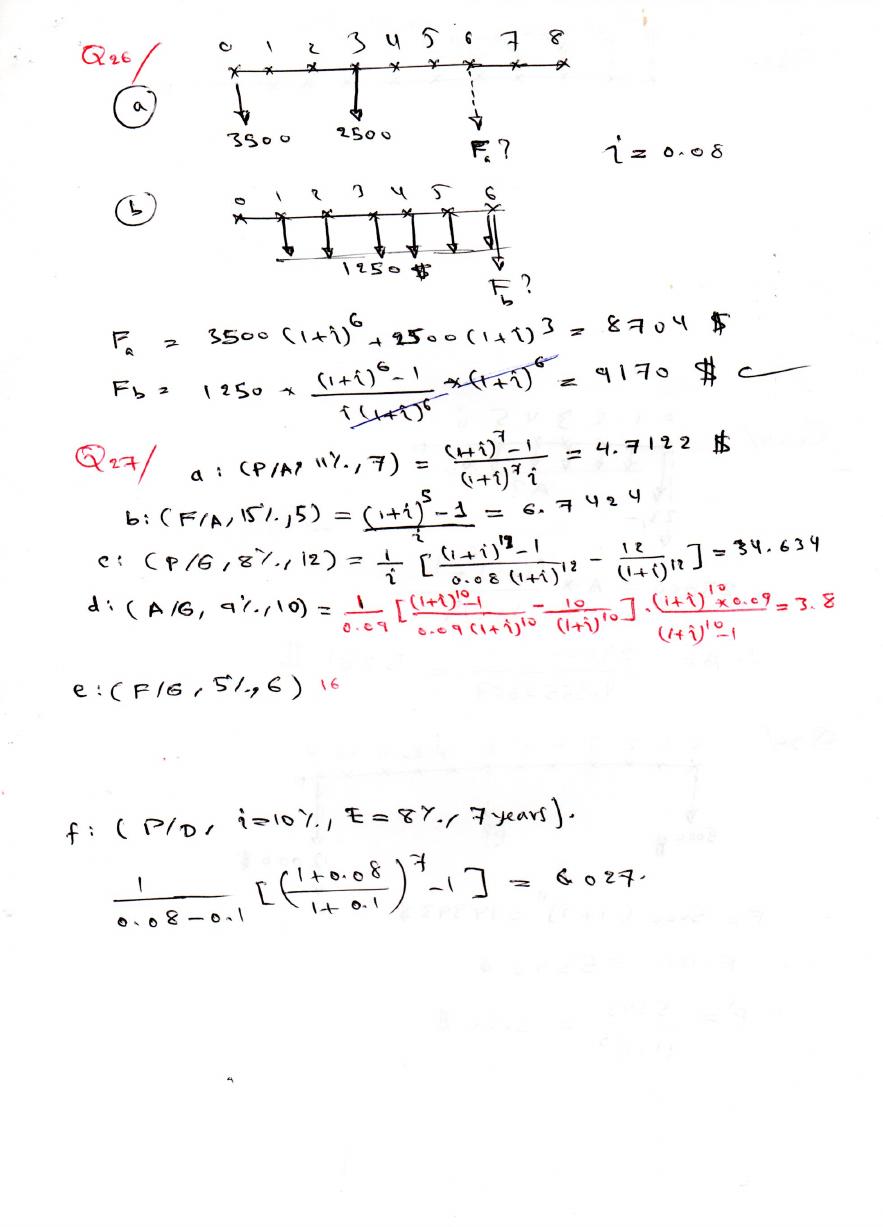 Q26/
0 1 2 3 4 5 6 7 8
a
3500 2500 Fa? i = 0.08
b
0 1 2 3 4 5 6
1250 $
Fb?
Fa = 3500 (1+i)^6 + 2500 (1+i)^3 = 8704 $
Fb = 1250 × ((1+i)^6 - 1)/(i (1+i)^6) × (1+i)^6 = 9170 $
Q27/
a : (P/A, 11%, 7) = ((1+i)^7 - 1)/((1+i)^7 i) = 4.7122 $
b: (F/A, 15%, 5) = ((1+i)^5 - 1)/i = 6.7424
c: (P/G, 8%, 12) = 1/i [((1+i)^12 - 1)/(0.08 (1+i)^12) - 12/(1+i)^12] = 34.634
d: (A/G, 9%, 10) = 1/0.09 [((1+i)^10 - 1)/(0.09 (1+i)^10) - 10/(1+i)^10] . ((1+i)^10 × 0.09)/((1+i)^10 - 1) = 3.8
e: (F/G, 5%, 6) 16
f: (P/D, i=10%, E=8%, 7 years).
1/(0.08 - 0.1) [((1+0.08)/(1+0.1))^7 - 1] = 6.027.